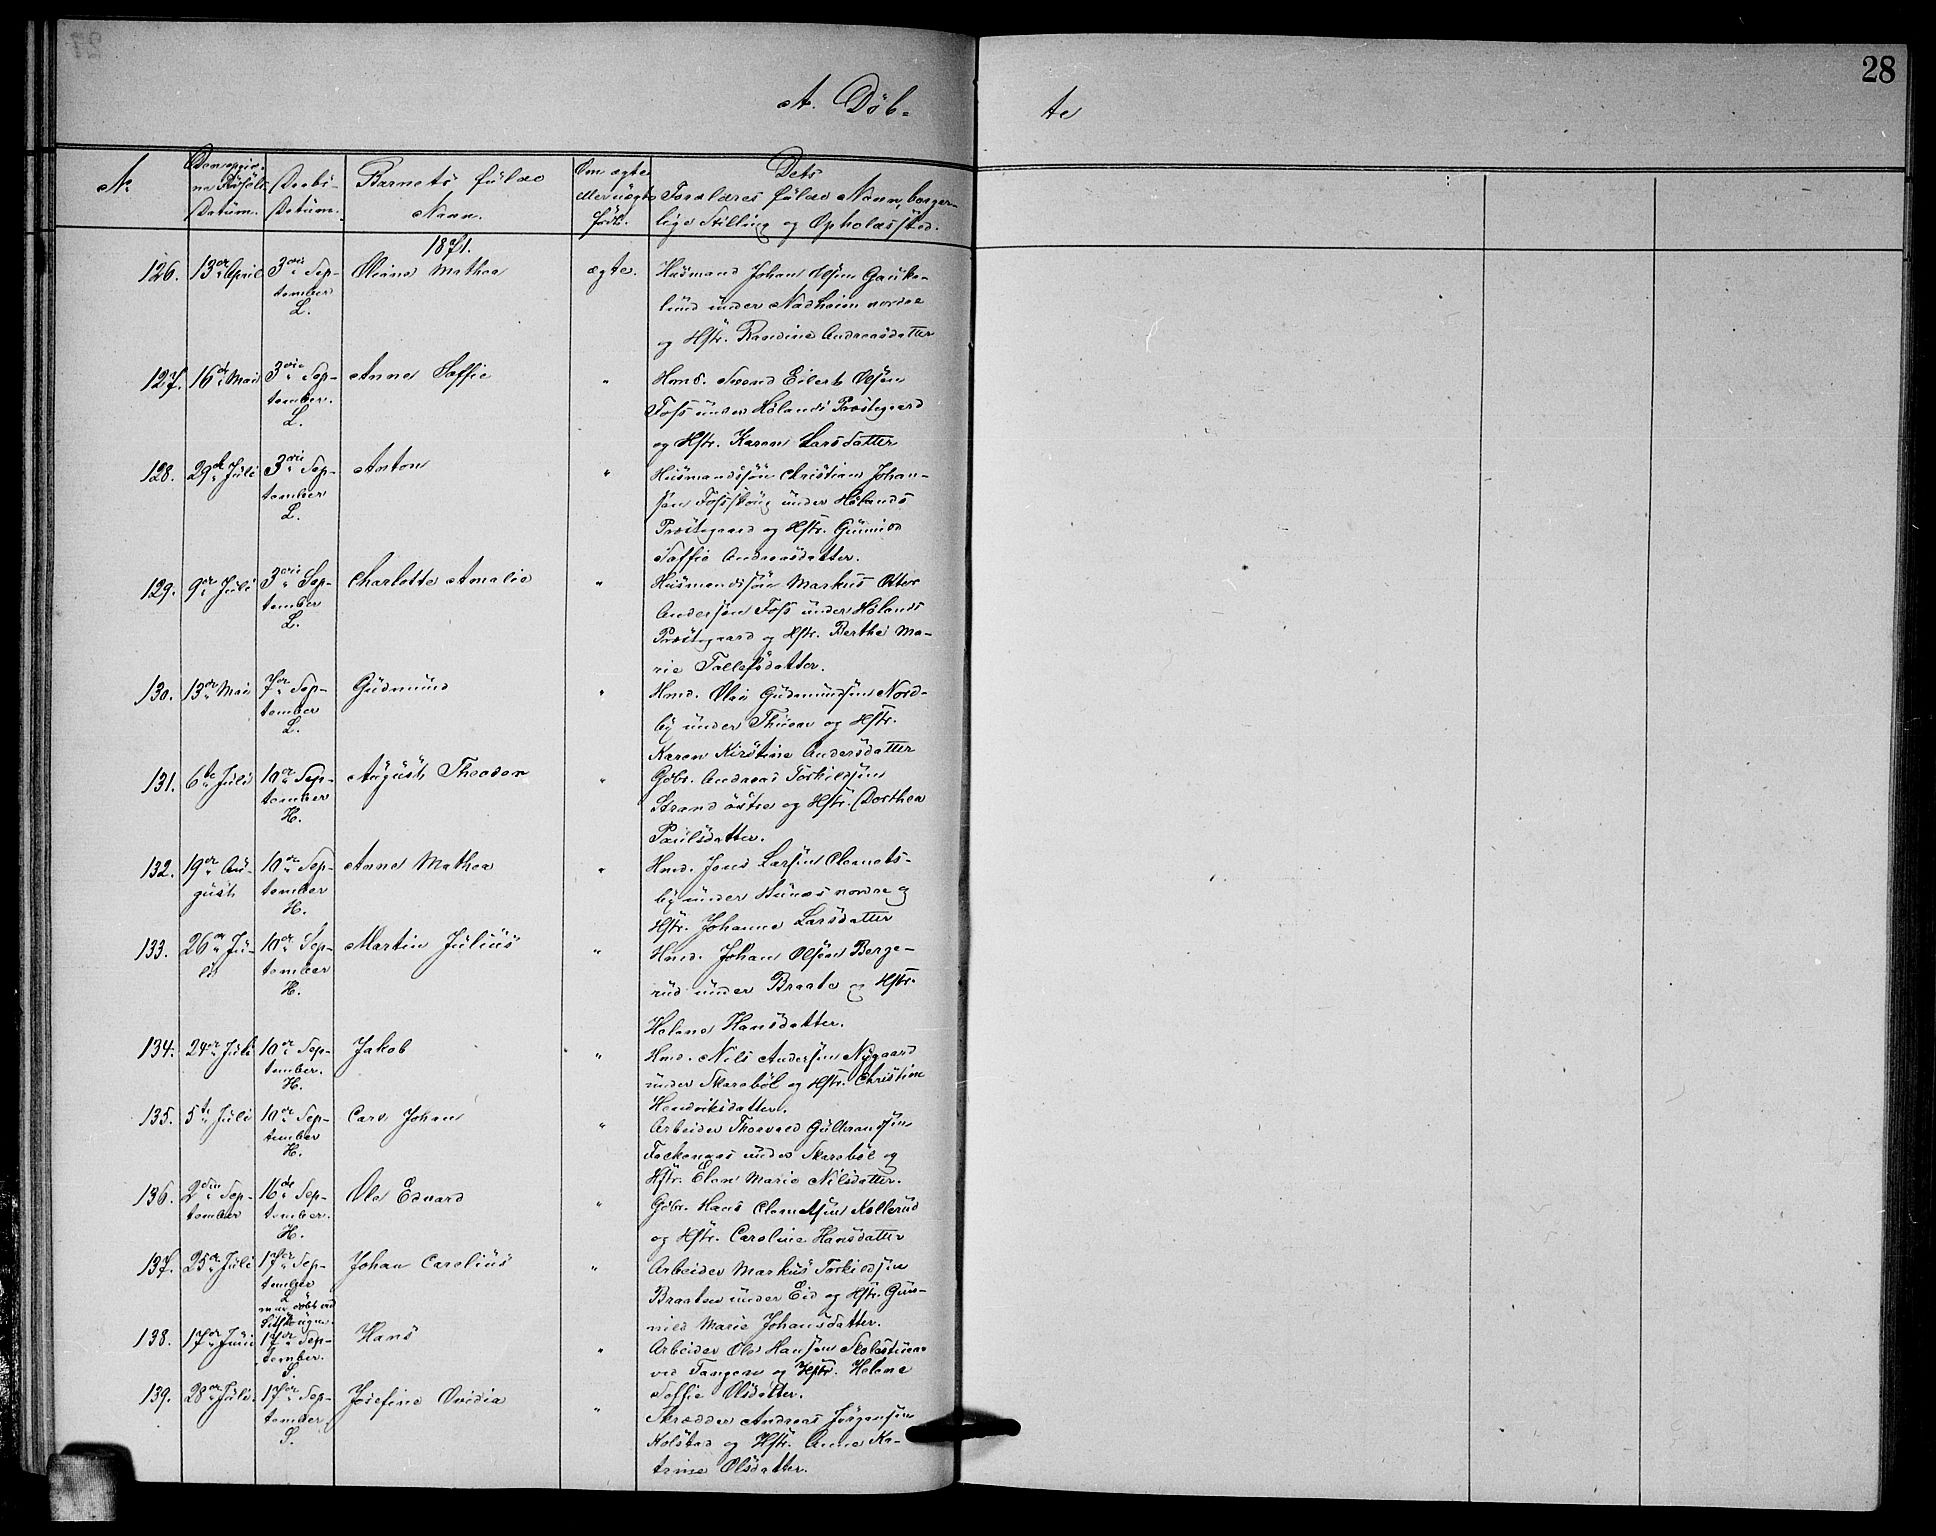 28
A. Döb-
te
No.
Den opgiv-
ne Födsels
Datum.
Daabs-
Datum.
Barnets fulde
Navn.
Om ægte
eller uægte
född.
Dets
Forældres fulde Navn, borger-
lige Stilling og Opholdssted.
1871.
126. 13de April 3die Sep-
tember
L.
Oleane Mathea
ægte.
Husmand Johan Olsen Gauke-
lund under Nadheim nordre
og Hstr. Randine Andreasdatter
127. 16de Mai 3die Sep-
tember.
L.
Anne Saffie
"
Hmd. Svend Eilert Olsen
Foss under Hölands Præstegaard
og Hstr. Karen Larsdatter
128. 29de Juli 3die Sep-
tember
L.
Anton
"
Husmandssön Christian Johan-
sen Fossskoug under Hölands
Præstegaard og Hstr. Gunnild
Saffie Andreasdatter.
129. 9de Juli 3die Sep-
tember
L.
Charlotte Amalie
"
Husmandssön Markus Otter
Andersen Foss under Hölands
Præstegaard og Hstr. Berthe Ma-
rie Tollefsdatter.
130. 13de Mai 7de Sep-
tember
L.
Gudmund
"
Hmd. Olai Gudmundsen Nord-
by under Thuen og Hstr.
Karen Kirstine Andersdatter
131. 6te Juli 10de Sep-
tember
H.
August Theodor
"
Gdbr. Andreas Torkildsen
Strand östre og Hstr. Dorthea
Paulsdatter.
132. 19de Au-
gust
10de Sep-
tember
H.
Anne Mathea
"
Hmd. Jens Larsen Clemets-
by under Hunæs nordre og
Hstr. Johanne Larsdatter
133. 26de Ju-
li
10de Sep-
tember
H.
Martin Julius
"
Hmd. Johan Olsen Berge-
rud under Braate og Hstr.
Helene Hansdatter.
134. 24de Juli 10de Sep-
tember.
H.
Jakob
"
Hmd. Nils Andersen Nygaard
under Skarebøl og Hstr. Christine
Hendriksdatter.
135. 5te Juli 10de Sep-
tember
H.
Carl Johan
"
Arbeider Thorvald Gulbrandsen
under Skarebøl og
Hstr. Elen Marie Nilsdatter.
136. 2den Sep-
tember
16de Sep-
tember.
H.
Ole Edvard
"
Gdbr. Hans Clemetsen Kollerud
og Hstr. Caroline Hansdatter
137. 25de Juli 17de Sep-
tember
L
Johan Carelius
"
Arbeider Markus Torkildsen
Braaten under Eid og Hstr. Gun-
nild Marie Johansdatter.
138. 17de Juni 17de Sep-
tember.
S.
Hans
"
Arbeider Ole Hansen Skolestuen
ved Tangen og Hstr. Helene
Saffie Olsdatter.
139. 28de Juli. 17de Sep-
tember
S.
Josefine Ovidia
"
Skrædder Andreas Jörgensen
Kolstad og Hstr. Anne Ka-
trine Olsdatter.